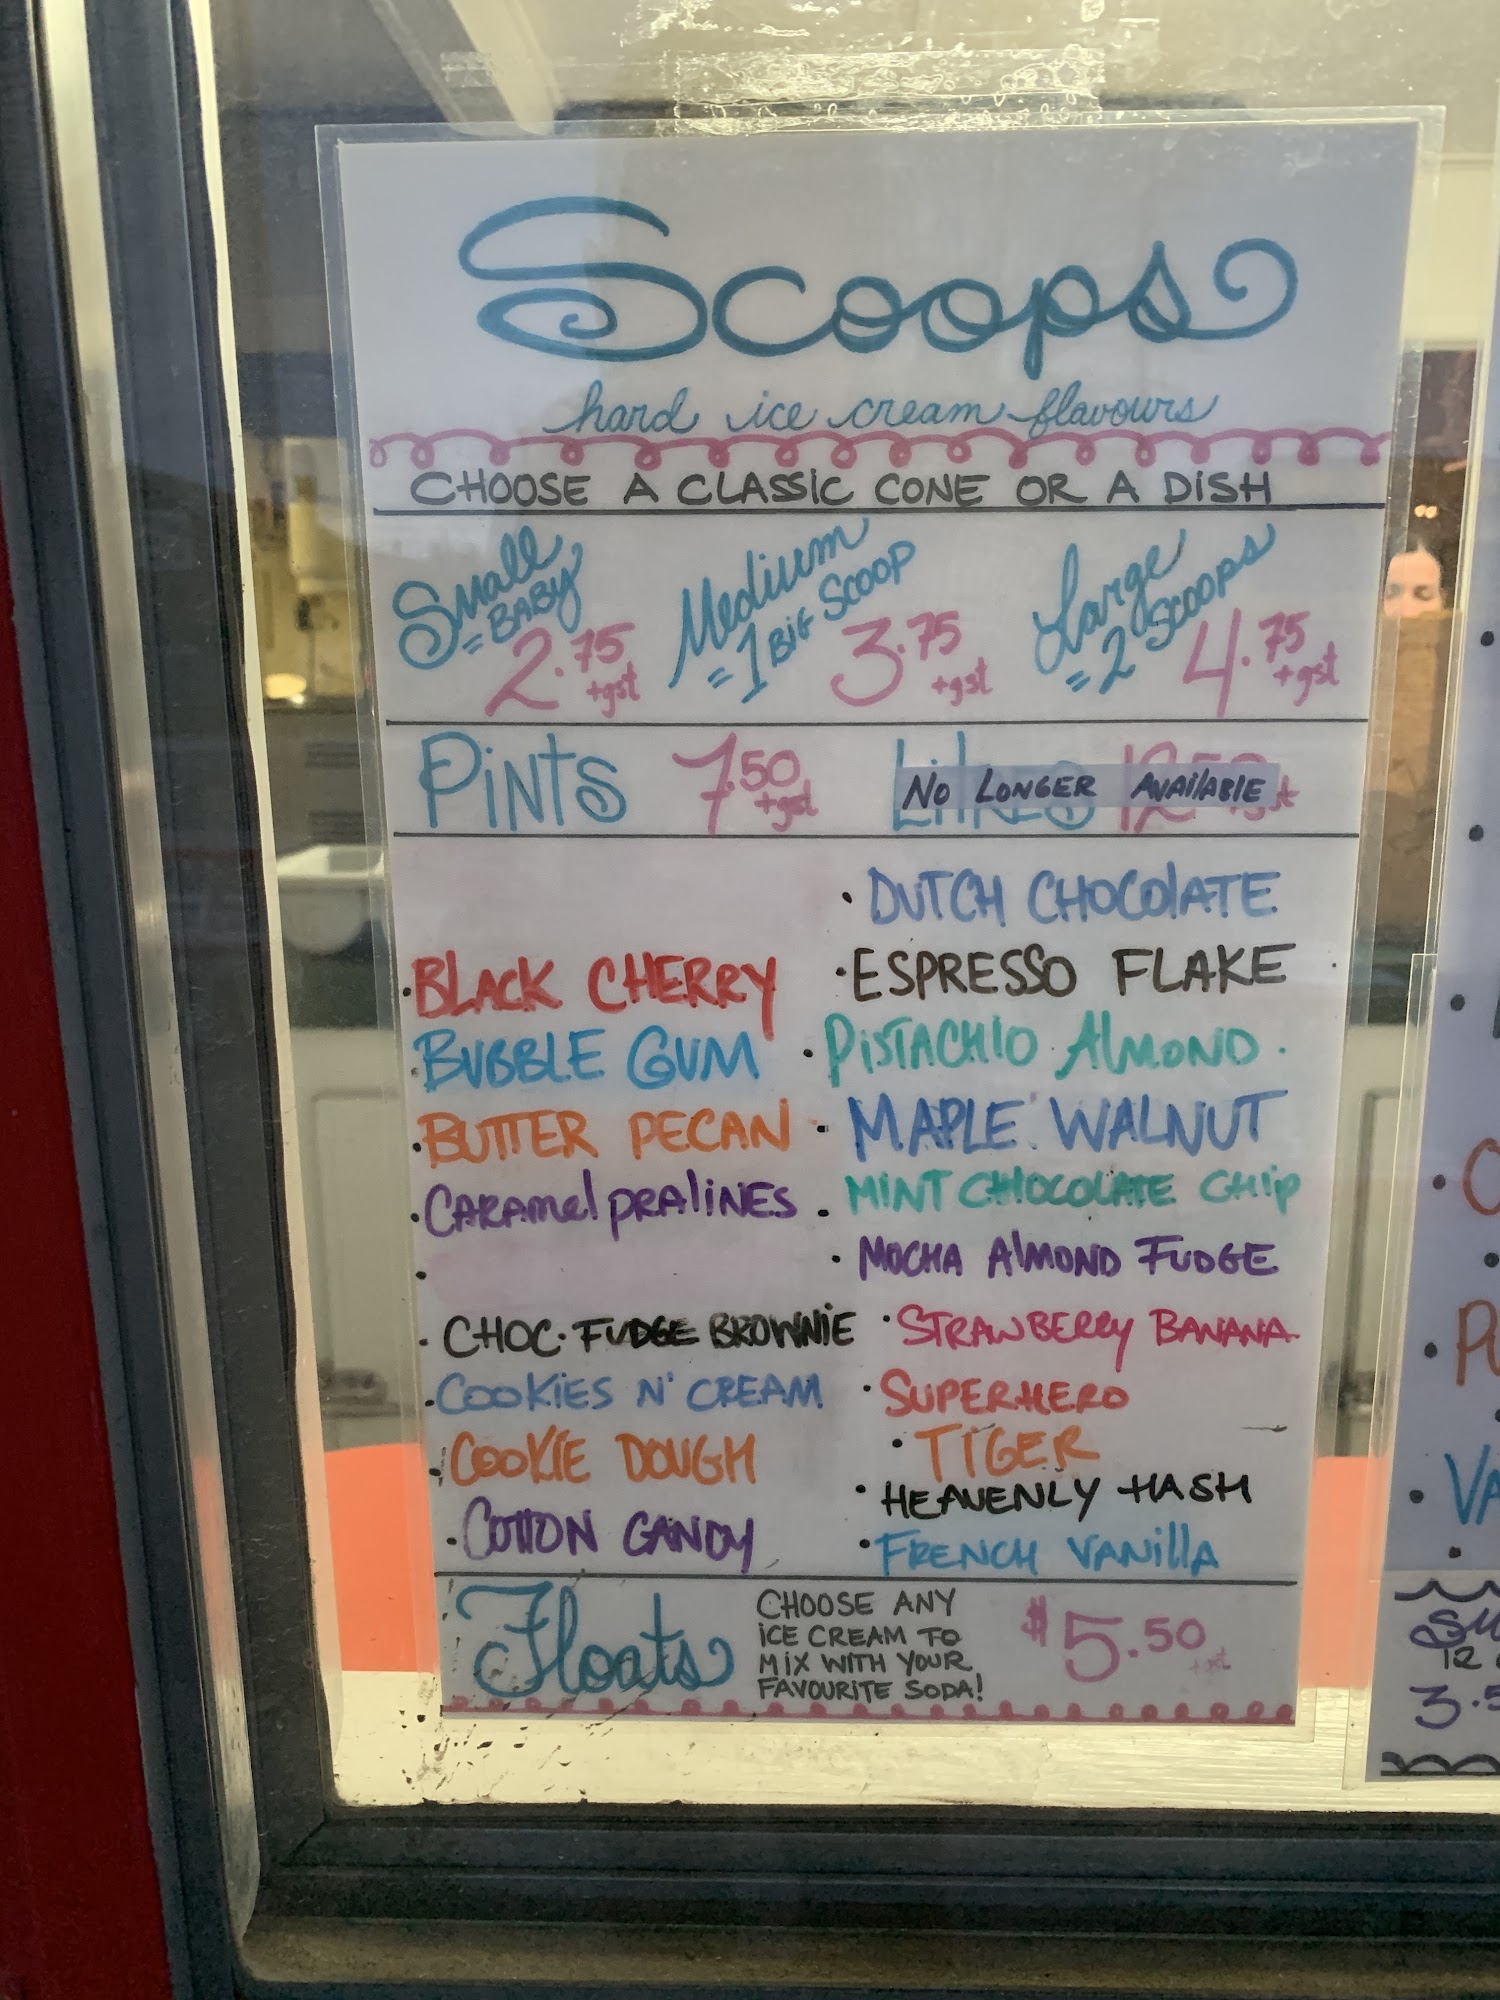 Scoops
hard ice cream flavours
CHOOSE A CLASSIC CONE OR A DISH
Small
= BABY
2.75
+gst
Medium
= 1 BIG SCOOP
3.75
+gst
Large
= 2 SCOOPS
4.75
+gst
PINTS 7.50
+gst
Litres 12.50
NO LONGER AVAILABLE
• BLACK CHERRY
• BUBBLE GUM
• BUTTER PECAN
• CARAMEL PRALINES
•
• CHOC. FUDGE BROWNIE
• COOKIES N' CREAM
• COOKIE DOUGH
• COTTON CANDY
• DUTCH CHOCOLATE
• ESPRESSO FLAKE
• PISTACHIO ALMOND
• MAPLE WALNUT
• MINT CHIOCOLATE CHIP
• MOCHA ALMOND FUDGE
• STRAWBERRY BANANA
• SUPERHERO
• TIGER
• HEAVENLY HASH
• FRENCH VANILLA
Floats
CHOOSE ANY
ICE CREAM TO
MIX WITH YOUR
FAVOURITE SODA!
$5.50
+gst
VA
12
3.5